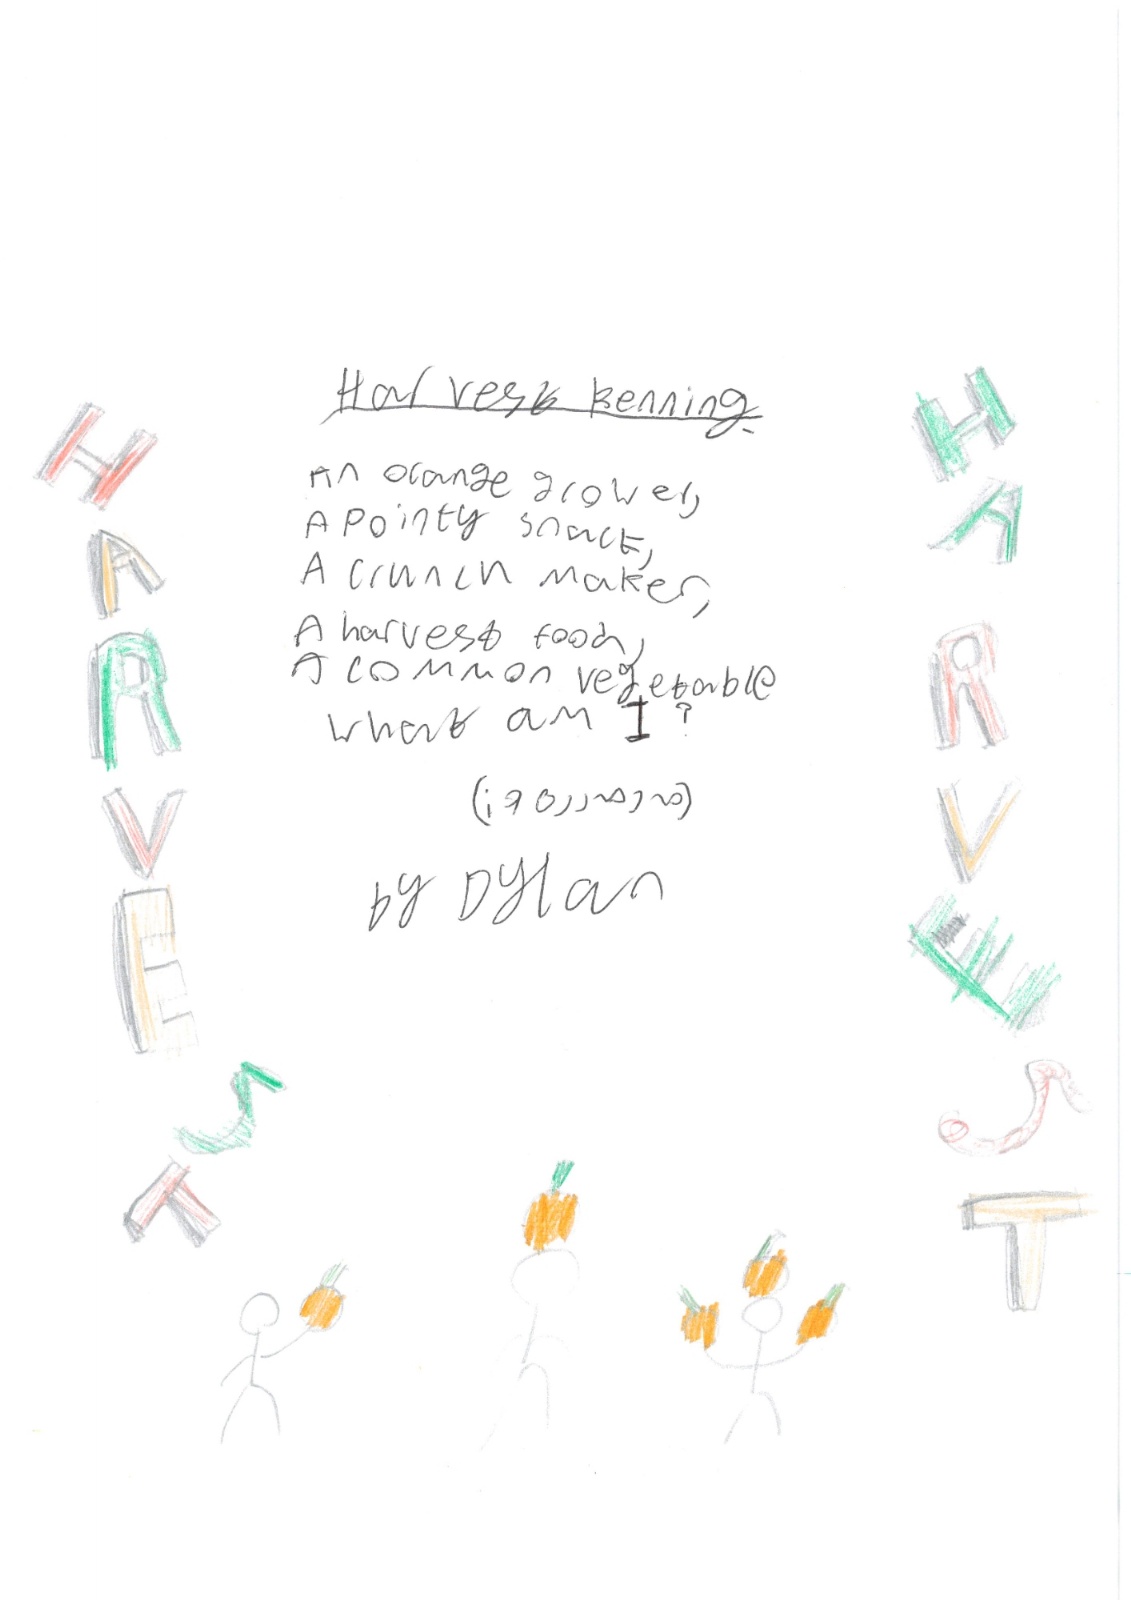 Harvest Kenning
An orange grower,
A Pointy snack,
A crunch maker,
A harvest food,
A common vegetable
What am I?
by Dylan
HARVEST
HARVEST